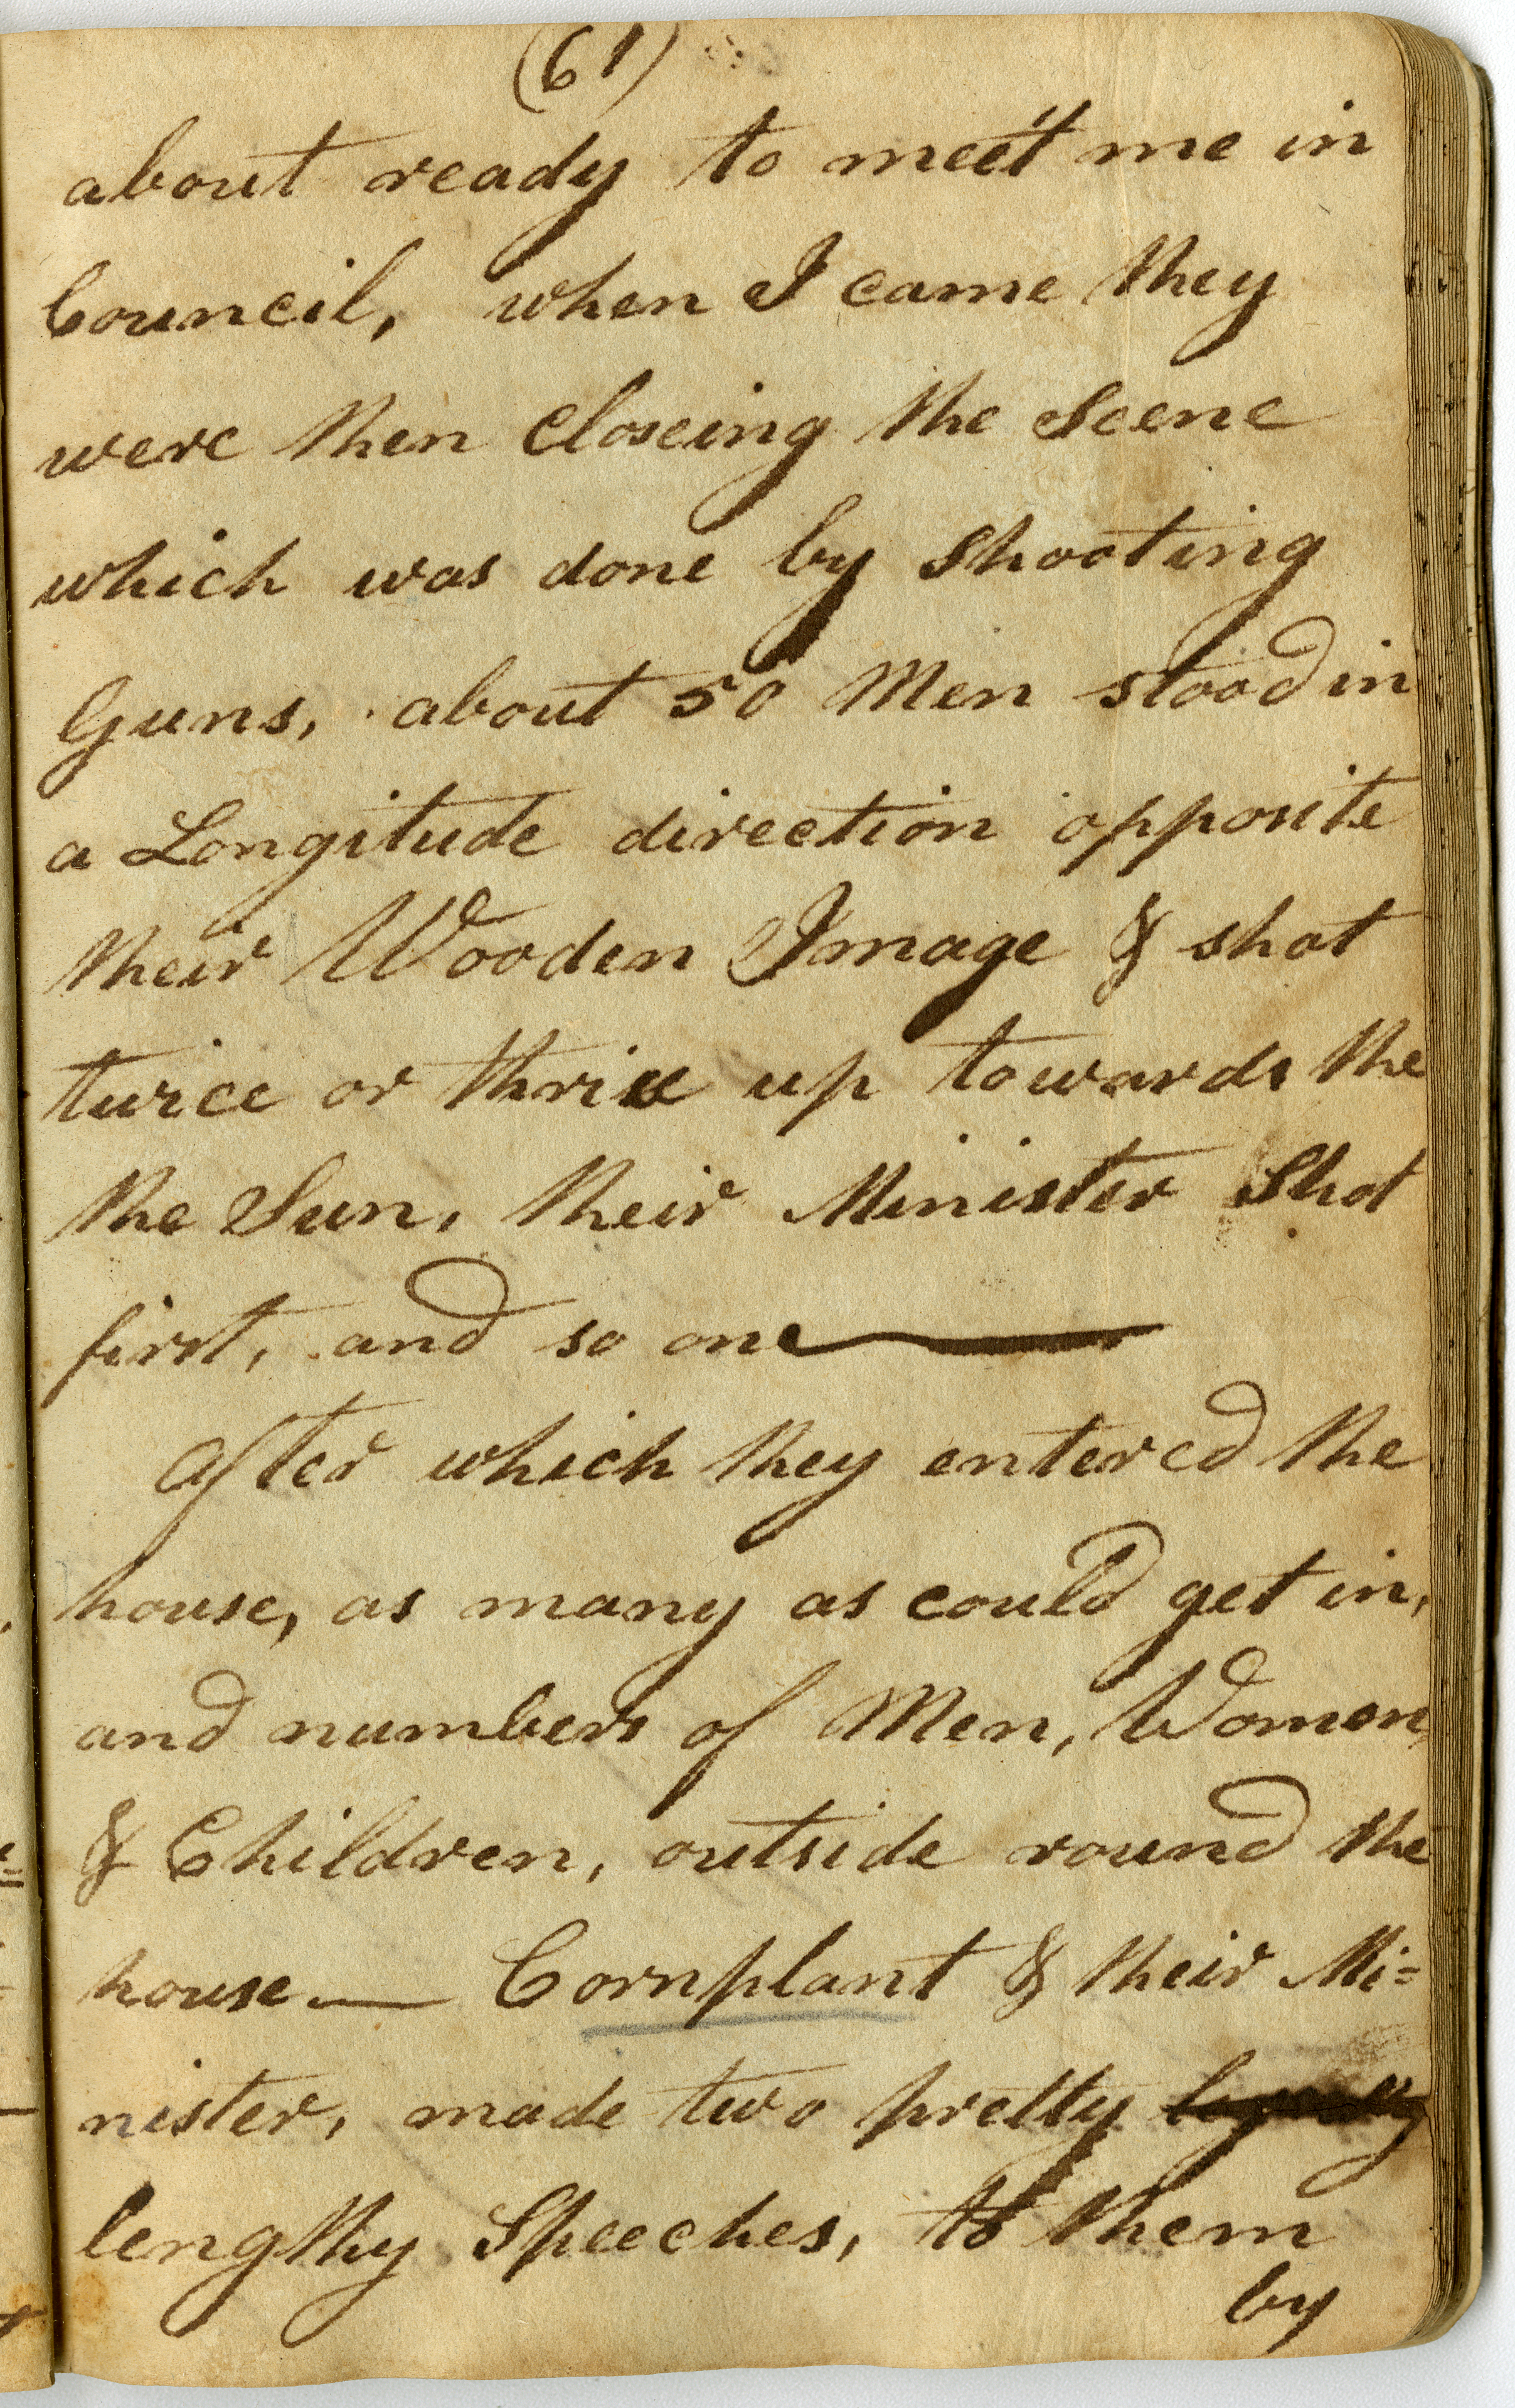 (61)
about ready to meet me in
Council, when I came they
were then Closeing the Scene
which was done by Shooting
Guns, about 50 Men stood in
a Longitude direction opposite
their Wooden Image & shot
twice or thrice up towards the
the Sun, their Minister Shot
first, and so one
After which they entered the
house, as many as could get in,
and numbers of Men, Women,
& Children, outside round the
house — Cornplant & their Mi=
nister, made two pretty
lengthy Speeches, to them
by